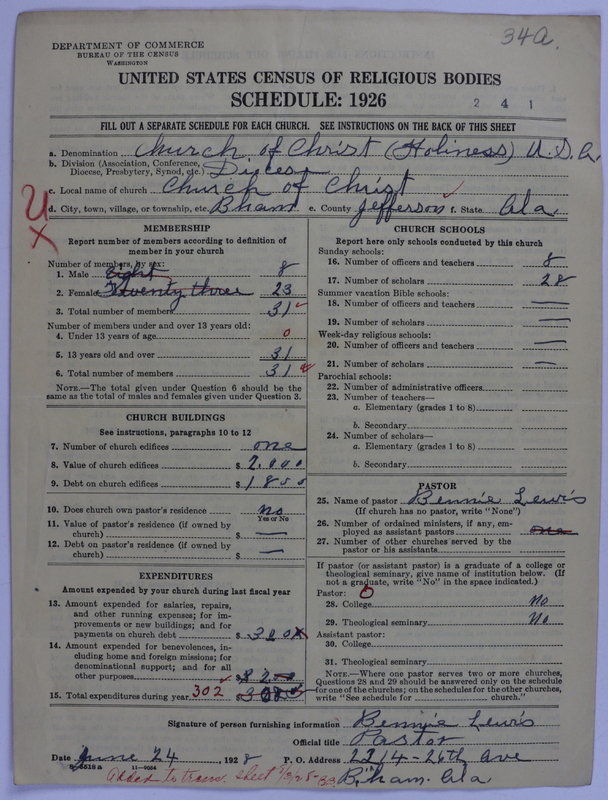 34a.
DEPARTMENT OF COMMERCE
BUREAU OF THE CENSUS
WASHINGTON
UNITED STATES CENSUS OF RELIGIOUS BODIES
SCHEDULE: 1926
2 4 1
FILL OUT A SEPARATE SCHEDULE FOR EACH CHURCH. SEE INSTRUCTIONS ON THE BACK OF THIS SHEET
a. Denomination Church of Christ (Holiness) U.S.A.
b. Division (Association, Conference, Diocese, Presbytery, Synod, etc.)
c. Local name of church Church of Christ
d. City, town, village, or township, etc. Bham e. County Jefferson f. State Ala.
MEMBERSHIP
Report number of members according to definition of member in your church
Number of members, by sex:
1. Male Eight 8
2. Female Twenty three 23
3. Total number of members 31
Number of members under and over 13 years old:
4. Under 13 years of age 0
5. 13 years old and over 31
6. Total number of members 31
NOTE.—The total given under Question 6 should be the same as the total of males and females given under Question 3.
CHURCH BUILDINGS
See instructions, paragraphs 10 to 12
7. Number of church edifices one
8. Value of church edifices $ 2,000
9. Debt on church edifices $ 1800
10. Does church own pastor's residence? No
Yes or No
11. Value of pastor's residence (if owned by church) $ —
12. Debt on pastor's residence (if owned by church) $ —
EXPENDITURES
Amount expended by your church during last fiscal year
13. Amount expended for salaries, repairs, and other running expenses; for improvements or new buildings; and for payments on church debt $
14. Amount expended for benevolences, including home and foreign missions; for denominational support; and for all other purposes
15. Total expenditures during year 302
CHURCH SCHOOLS
Report here only schools conducted by this church
Sunday schools:
16. Number of officers and teachers 8
17. Number of scholars 28
Summer vacation Bible schools:
18. Number of officers and teachers —
19. Number of scholars —
Week-day religious schools:
20. Number of officers and teachers —
21. Number of scholars —
Parochial schools:
22. Number of administrative officers
23. Number of teachers—
a. Elementary (grades 1 to 8)
b. Secondary
24. Number of scholars—
a. Elementary (grades 1 to 8)
b. Secondary
PASTOR
25. Name of pastor Bennie Lewis
(If church has no pastor, write "None")
26. Number of ordained ministers, if any, employed as assistant pastors one
27. Number of other churches served by the pastor or his assistants
If pastor (or assistant pastor) is a graduate of a college or theological seminary, give name of institution below. (If not a graduate, write "No" in the space indicated.)
Pastor:
28. College No
29. Theological seminary No
Assistant pastor:
30. College
31. Theological seminary
NOTE.—Where one pastor serves two or more churches, Questions 28 and 29 should be answered only on the schedule for one of the churches; on the schedules for the other churches, write "See schedule for church."
Signature of person furnishing information Bennie Lewis
Official title Pastor
Date June 24, 1928 P. O. Address 2214-26th Ave
8-5518 a 11-9064
Added to trans. sheet
B'ham. Ala